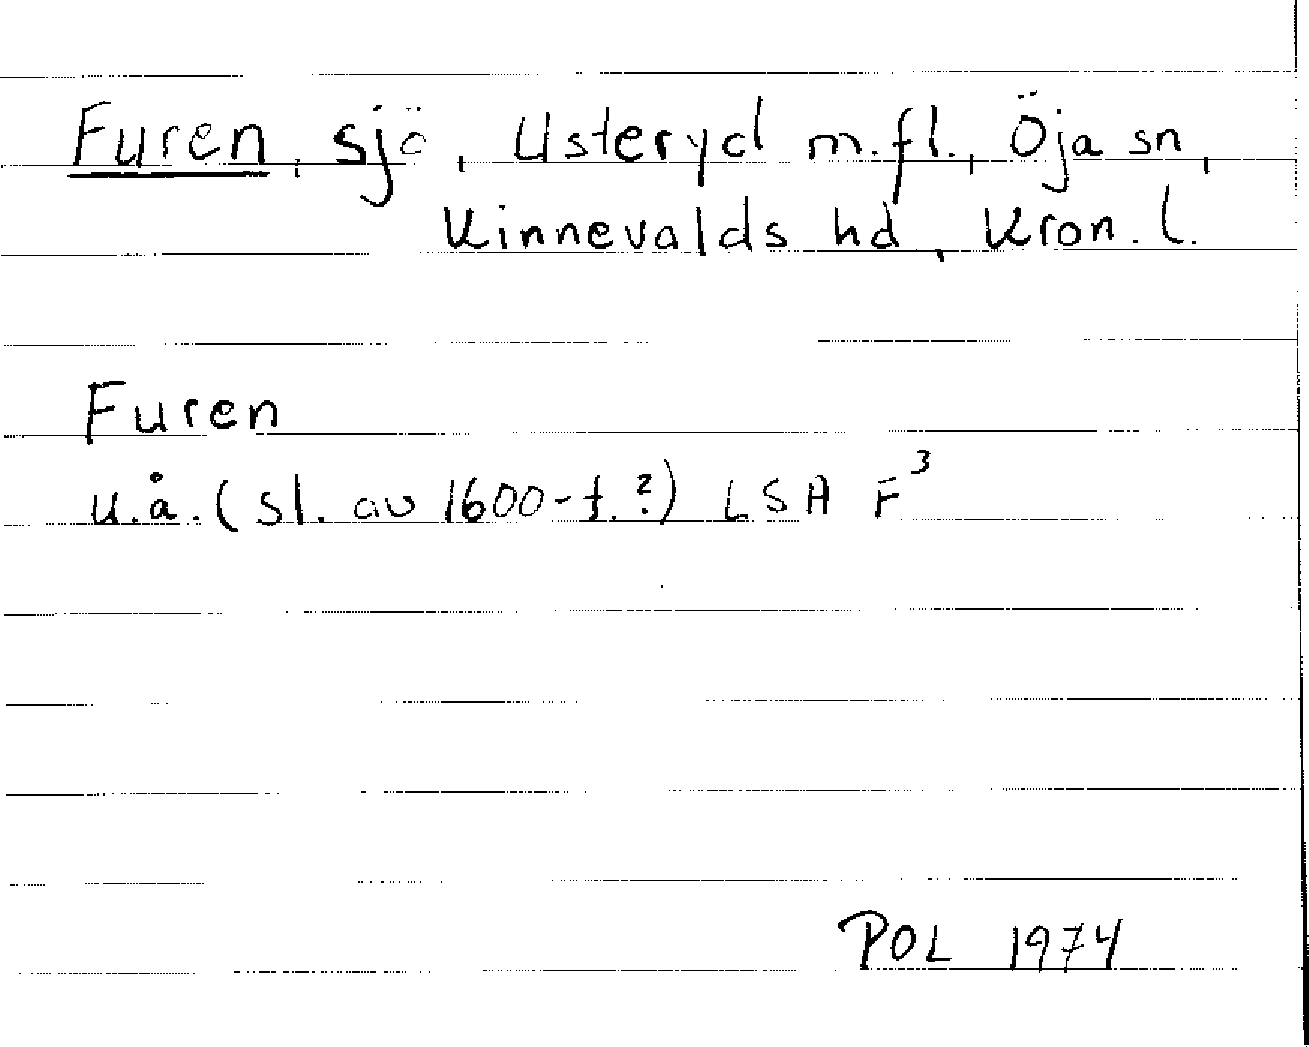 Furen, sjö, Usteryd m.fl., Öja sn,
Kinnevalds hd, Kron. l.
Furen
u.å. (sl. av 1600-t. ?) LSA F³
POL 1974